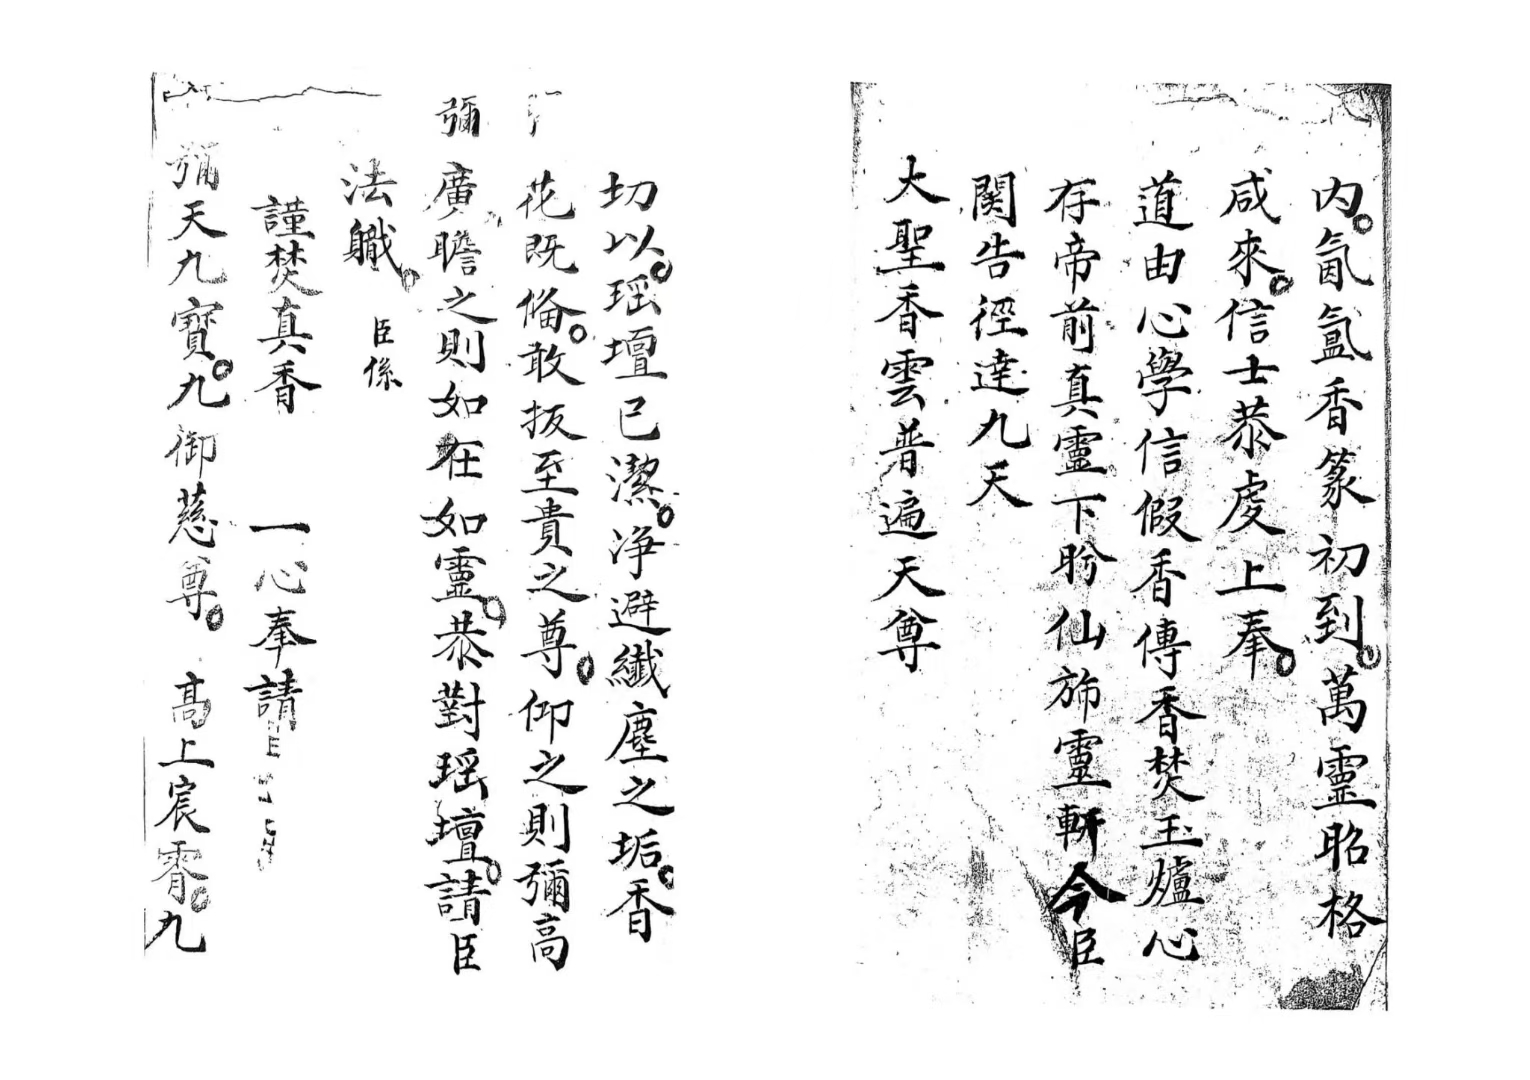 内。氤氳香篆初到。萬靈昭格
咸來。信士恭虔上奉。
道由心學信假香傳香焚玉爐心
存帝前真靈下盻仙斾靈軿今臣
関告徑達九天
大聖香雲普遍天尊
切以。瑶壇已潔。净避纖塵之垢。香
花既俻。敢扳至貴之尊。仰之則彌高
彌廣瞻之則如在如靈。恭對瑶壇。請臣
法職。臣係
謹焚真香 一心奉請
天九寳。九御慈尊。高上宸霄。九